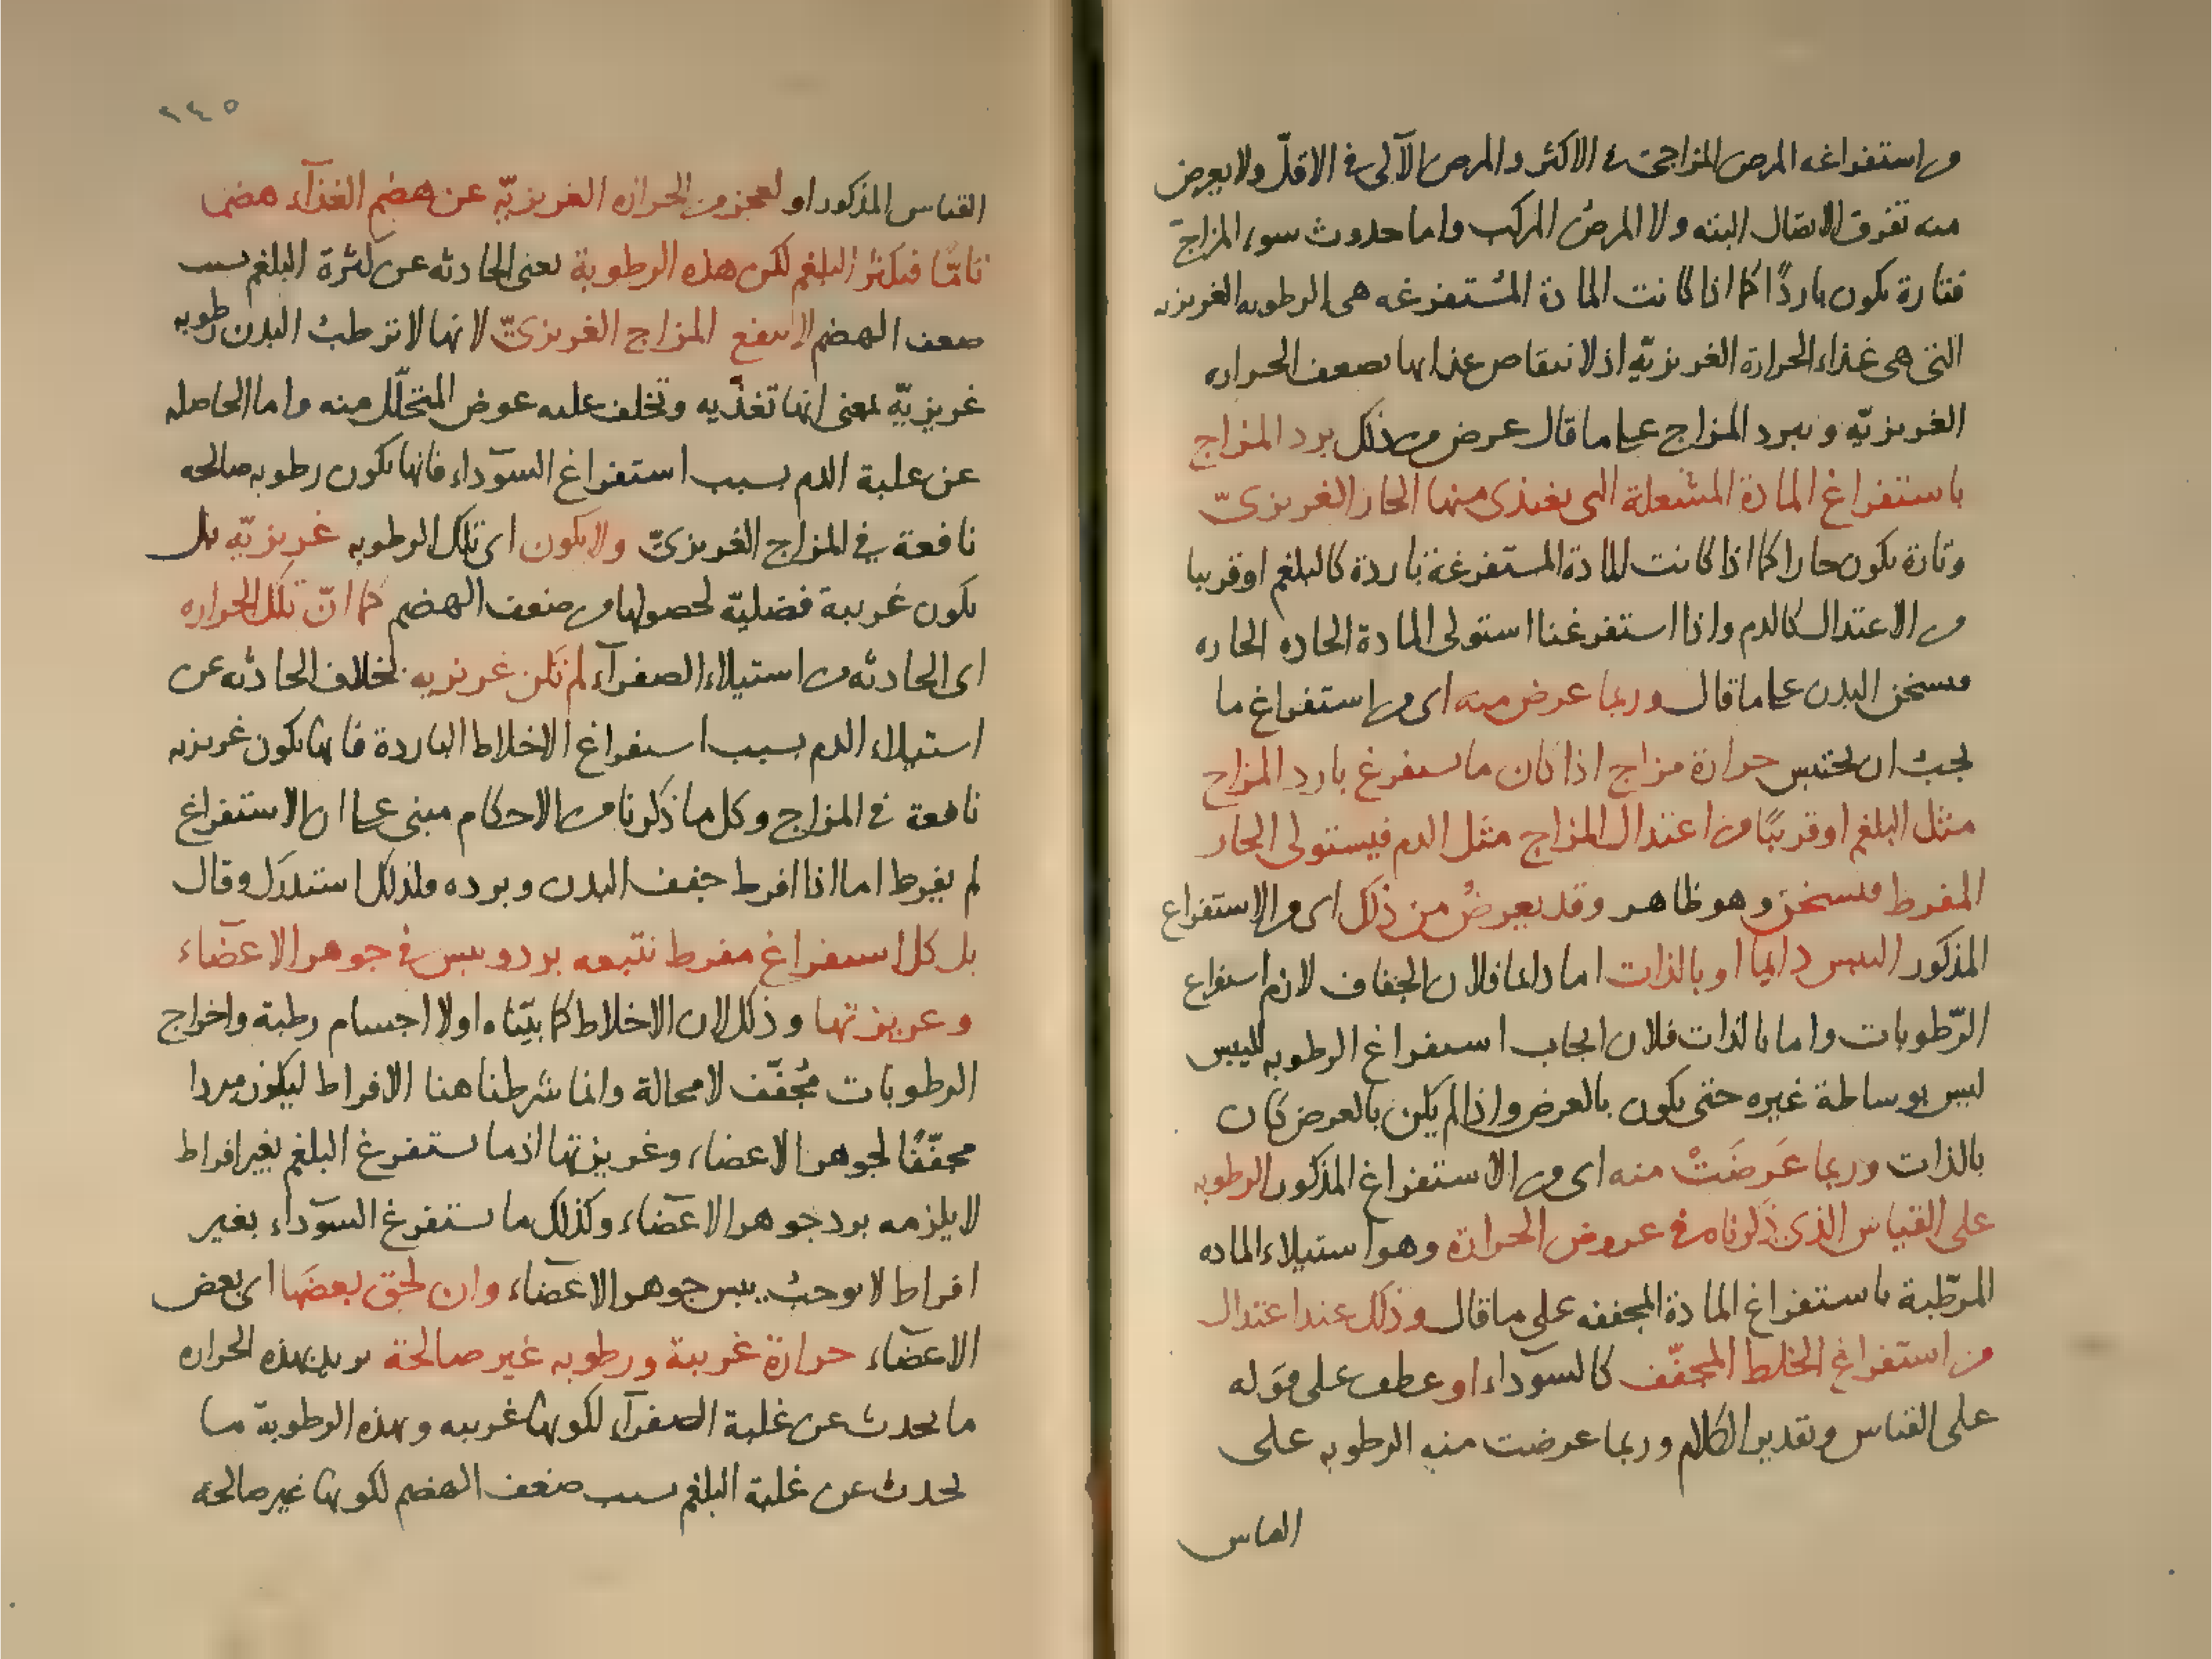 من استفراغه المرض المزاجى فى الاكثر والمرض الآلى فى الاقلّ ولا يعرض
منه تفرق الاتصال البته ولا المرض المركب واما حدوث سوء المزاج
فتارة يكون باردًا كما اذا كانت المادة المُستفرغه هى الرطوبه الغريزيه
التى هى غذاء الحرارة الغريزيّه اذ لانتقاص غذايها تضعف الحراره
الغريزيّه ويبرد المزاج على ما قال عرض من ذلك برد المزاج
باستفراغ المادة المشعلة التى يغتذى منها الحار الغريزىّ
وتارة يكون حارا كما اذا كانت المادة المستفرغة باردة كالبلغم او قريبا
من الاعتدال كالدم واذا استفرغنا استولى المادة الحاده الحاره
فسخن البدن على ما قال وربما عرض منه اى من استفراغ ما
يجب ان يحتبس حرارة مزاج اذا كان ما يستفرغ بارد المزاج
مثل البلغم او قريبًا من اعتدال المزاج مثل الدم فيستولى الحار
المفرط فيسخن وهو ظاهر وقد يعرضُ من ذلك اى من الاستفراغ
المذكور اليبس دايما او بالذات اما دائما فلان الجفاف لازم استفراغ
الرّطوبات واما بالذات فلان ايجاب استفراغ الرطوبه لليبس
ليس بوساطة غيره حتى يكون بالعرض واذا لم يكن بالعرض كان
بالذات وربما عَرضَتْ منه اى من الاستفراغ المذكور الرطوبه
على القياس الذى ذكرناه فى عروض الحرارة وهو استيلاء الماده
المرّطبة باستفراغ المادة المجففه على ما قال وذلك عند اعتدال
من استفراغ الخلط المجفّف كالسوداء او عطف على قوله
على القياس وتقدير الكلام وربما عرضت منه الرطوبه على
القياس
٢٤٥
القياس المذكور او لعجز من الحراره الغريزيّه عن هضم الغذآء هضما
تامًّا فيكثر البلغم لكن هذه الرطوبة يعنى الحادثه عن كثرة البلغم بسبب
ضعف الهضم لا ينفع المزاج الغريزىّ لانها لا ترطب البدن رطوبه
غريزيّه بمعنى انها تغذّيه وتخلف عليه عوض المتحلّل منه واما الحاصله
عن غلبة الدم بسبب استفراغ السوداء فانها يكون رطوبه صالحه
نافعة فى المزاج الغريزىّ ولا يكون اى تلك الرطوبه غريزيّه بل
يكون غريبة فضليّه لحصولها من ضعف الهضم كما انّ تلك الحراره
اى الحادثه من استيلاء الصفرآء لم تكن غريزيه بخلاف الحادثه عن
استيلاء الدم بسبب استفراغ الاخلاط الباردة فانها يكون غريزيه
نافعة فى المزاج وكل ما ذكرنا من الاحكام مبنى على ان الاستفراغ
لم يفرط اما اذا افرط جفف البدن وبرده ولذلك استدرك وقال
بل كل استفراغ مفرط تتبعه برد ويبس فى جوهر الاعضاء
وغريزتها وذلك لان الاخلاط كما بيّناه اولا اجسام رطبة واخراج
الرطوبات مُجفّف لا محالة وانما شرطنا هنا الافراط ليكون مبردا
مجفّفًا لجوهر الاعضاء وغريزتها اذ ما يستفرغ البلغم بغير افراط
لا يلزمه برد جوهر الاعضاء وكذلك ما يستفرغ السوداء بغير
افراط لا يوجب يبس جوهر الاعضاء وان لحق بعضَها اى بعض
الاعضاء حرارة غريبة ورطوبه غير صالحة يريد بهذه الحراره
ما يحدث عن غلبة الصفرآء لكونها غريبه وبهذه الرطوبة ما
يحدث عن غلبة البلغم بسبب ضعف الهضم لكونها غير صالحة